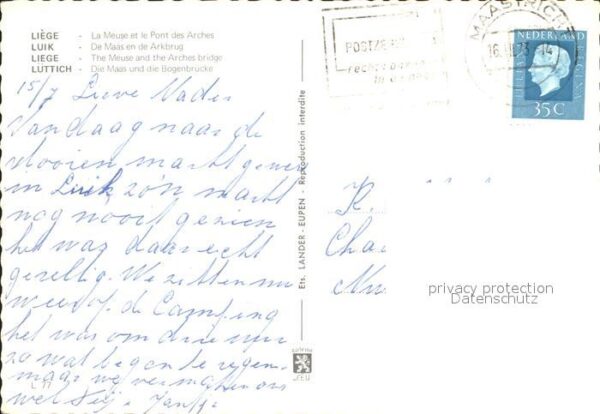 LIÈGE - La Meuse et le Pont des Arches
LUIK - De Maas en de Arkbrug
LIEGE - The Meuse and the Arches bridge
LÜTTICH - Die Maas und die Bogenbrücke
15/7 Lieve Vader
Vandaag naar de
vlooien markt geweest
in Luik zo'n markt
nog nooit gezien
het was daar echt
gezellig. We zitten nu
weer op de Camping
het was om drie uur
zo wat begon te regen
maar we vermaken ons
wel
Ets. LANDER - EUPEN - Reproduction interdite
L 77
MAASTRICHT
16. VII. 73 - 14
POSTZEGEL
rechts boven
in de hoek
NEDERLAND
JULIANA
35C
K.
Cha
privacy protection
Datenschutz